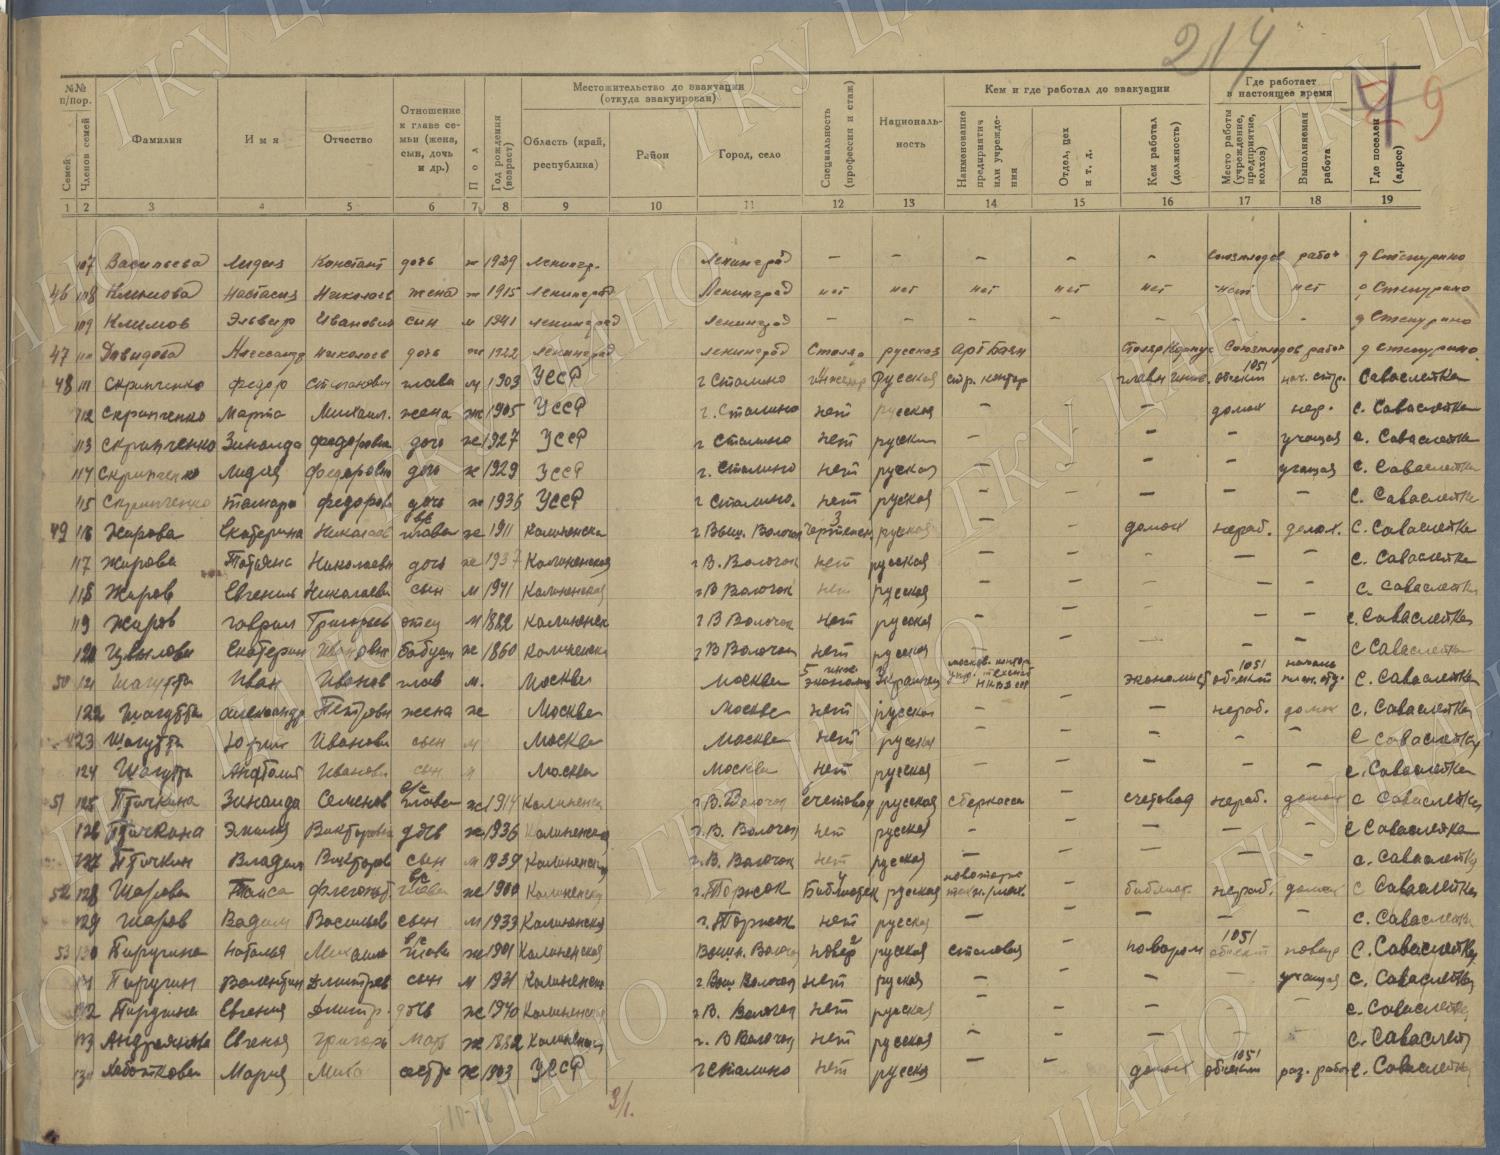 214
49
№№ п/пор.
Семей
Членов семей
Фамилия
Имя
Отчество
Отношение к главе семьи (жена, сын, дочь и др.)
Пол
Год рождения (возраст)
Местожительство до эвакуации (откуда эвакуирован)
Область (край, республика)
Район
Город, село
Специальность (профессия и стаж)
Националь-ность
Кем и где работал до эвакуации
Наименование предприятия или учрежде-ния
Отдел, цех и т. д.
Кем работал (должность)
Где работает в настоящее время
Место работы (учреждение, предприятие, колхоз)
Выполняемая работа
Где поселен (адрес)
1 2 3 4 5 6 7 8 9 10 11 12 13 14 15 16 17 18 19
107 Васильева Лидия Констант дочь ж 1929 Ленингр. Ленинград – – – – – Союзплодов работ д Степурино
46 108 Климова Настасия Николаев жена ж 1915 Ленинград Ленинград нет нет нет нет нет нет нет д Степурино
109 Климов Эльвир Иванович сын м 1941 Ленинград Ленинград – – – – – – – д Степурино
47 110 Давидова Александр Николаев дочь ж 1922 Ленинград Ленинград Столяр русская Арт Баян Столяр Союзплодов работ д Степурино.
48 111 Скрипченко Федор Степанович глава м 1903 УССР г Сталино Русская стр. контор главн инж. 1051 объект нач. стр. Саваслейка
112 Скрипченко Марта Михаил. жена ж 1905 УССР г. Сталино нет русская – – – домох нер. с. Саваслейка
113 Скрипченко Зинаида Федоровна дочь ж 1927 УССР г Сталино нет русския – – – – учащая с. Саваслейка
114 Скрипченко Лидия Федоровна дочь ж 1929 УССР г. Сталино нет руская – – – – учащая с. Саваслейка
115 Скрипченко Тамара Федоров дочь ж 1936 УССР г Сталино. нет руская – – – – – с. Саваслейка
49 116 Жирова Екатерина Николаев в/с глава ж 1911 Калиненска г Выш. Волочек 3 чертежн руская – – домох нераб. домох. с. Саваслейка
117 Жирова Татьяна Николаевн дочь ж 1937 Калиненская г В. Волочок нет русская – – – – – с. Саваслейка
118 Жиров Евгений Николаеви сын м 1941 Калиненская г В Волочок нет русская – – – – – с. Саваслейка
119 Жиров Гаврил Григорьев отец м 1882 Калиненск г В Волочок нет русская – – – – – с. Саваслейка
120 Екатерин Иванович бабуш ж 1860 Калиненска г В Волочок нет русская – – – – – с Саваслейка
50 121 Шагутта Иван Иванов глав м. Москва Москва 5 экономи Украинец НКВД ССР – экономист 1051 объект с. Саваслейка
122 Шагутта Александр Петровн жена ж Москва Москва нет русская – – – нераб. домох с. Саваслейка
123 Шагутта Юрий Иванови сын м Москва Москва нет русская – – – – – с Саваслейка
124 Шагутта Анатолий Иванови сын м Москва Москва нет русская – – – – – с. Саваслейка
51 125 Птичкина Зинаида Семенов в/с глава ж 1914 Калиненск г. В. Волочек счетовод русская сберкасса – счетовод нераб. домох с Саваслейка
126 Птичкина Эмилия Викторовна дочь ж 1936 Калиненска г. В. Волочек нет русская – – – – – с Саваслейка
127 Птичкин Владим Викторов сын м 1939 Калиненская г. В. Волочок нет русская – – – – – с. Саваслейка
52 128 Шарова Таиса в/с глава ж 1900 Калиненск г. Торжок Библиотек русская – библиот. нераб. домох с Саваслейка
129 Шаров Вадим Васильев сын м 1933 Калиненска г. Торжок нет русская – – – – – с. Саваслейка
53 130 Пиругина Наталья Михаил в/с глава ж 1901 Калиненская Вышн. Волоч повар русская столовая – поваром 1051 объект повар с. Саваслейка
131 Пиругин Валентин Дмитриев сын м 1931 Калиненск г Выш Волочек нет руская – – – – учащая с. Саваслейка
132 Пиругина Евгения Дмитр. дочь ж 1940 Калиненская г. В. Волочек нет русская – – – – – с. Саваслейка
133 Андреянова Евгения Григорь мать ж 1882 Калиненск г. В Волочек нет русская – – – – с. Саваслей
134 Мария сестра ж 1903 УССР г Сталино нет русская – – домох 1051 объект раз. работ с. Саваслейка